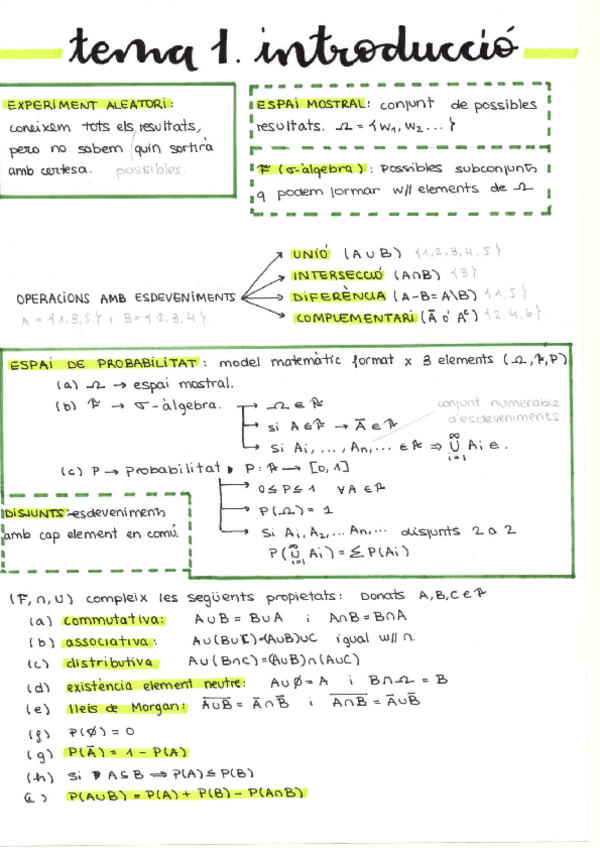 tema 1. introducció
EXPERIMENT ALEATORI:
coneixem tots els resultats,
pero no sabem quin sortirà
amb certesa. possibles.
ESPAI MOSTRAL: conjunt de possibles
resultats. Ω = {w₁, w₂ ... }
F (σ-àlgebra): Possibles subconjunts
q podem formar w// elements de Ω
UNIÓ (A∪B) {1,2,3,4,5}
INTERSECCIÓ (A∩B) {3}
OPERACIONS AMB ESDEVENIMENTS
DIFERÈNCIA (A-B=A\B) {1,5}
A = {1,3,5} ; B={2,3,4}
COMPLEMENTARI (Ā o' Aᶜ) {2,4,6}
ESPAI DE PROBABILITAT: model matemàtic format x 3 elements (Ω,F,P)
(a) Ω → espai mostral.
(b) F → σ-àlgebra. → Ω ∈ F
conjunt numerable
d'esdeveniments.
→ si A∈F → Ā ∈ F
→ si Ai, ..., An, ... ∈ F ⇒ ∞∪i=1 Ai ∈.
(c) P → Probabilitat, P: F → [0,1]
→ 0≤P≤1 ∀A ∈ F
→ P(Ω) = 1
→ Si Ai, A₂, ... An, ... disjunts 2 a 2
P(∞∪i=1 Ai) = Σ P(Ai)
DISJUNTS: esdeveniments
amb cap element en comú.
(F, ∩, ∪) compleix les següents propietats: Donats A,B,C∈F
(a) commutativa: A∪B = B∪A i A∩B = B∩A
(b) associativa: A∪(B∪C)=(A∪B)∪C igual w// ∩.
(c) distributiva A∪(B∩C)=(A∪B)∩(A∪C)
(d) existència element neutre: A∪∅=A i B∩Ω = B
(e) lleis de Morgan: A̅∪̅B̅ = Ā∩B̅ i A̅∩̅B̅ = Ā∪B̅
(f) P(∅) = 0
(g) P(Ā) = 1 - P(A)
(h) Si A⊆B ⇒ P(A) ≤ P(B)
(i) P(A∪B) = P(A) + P(B) - P(A∩B)